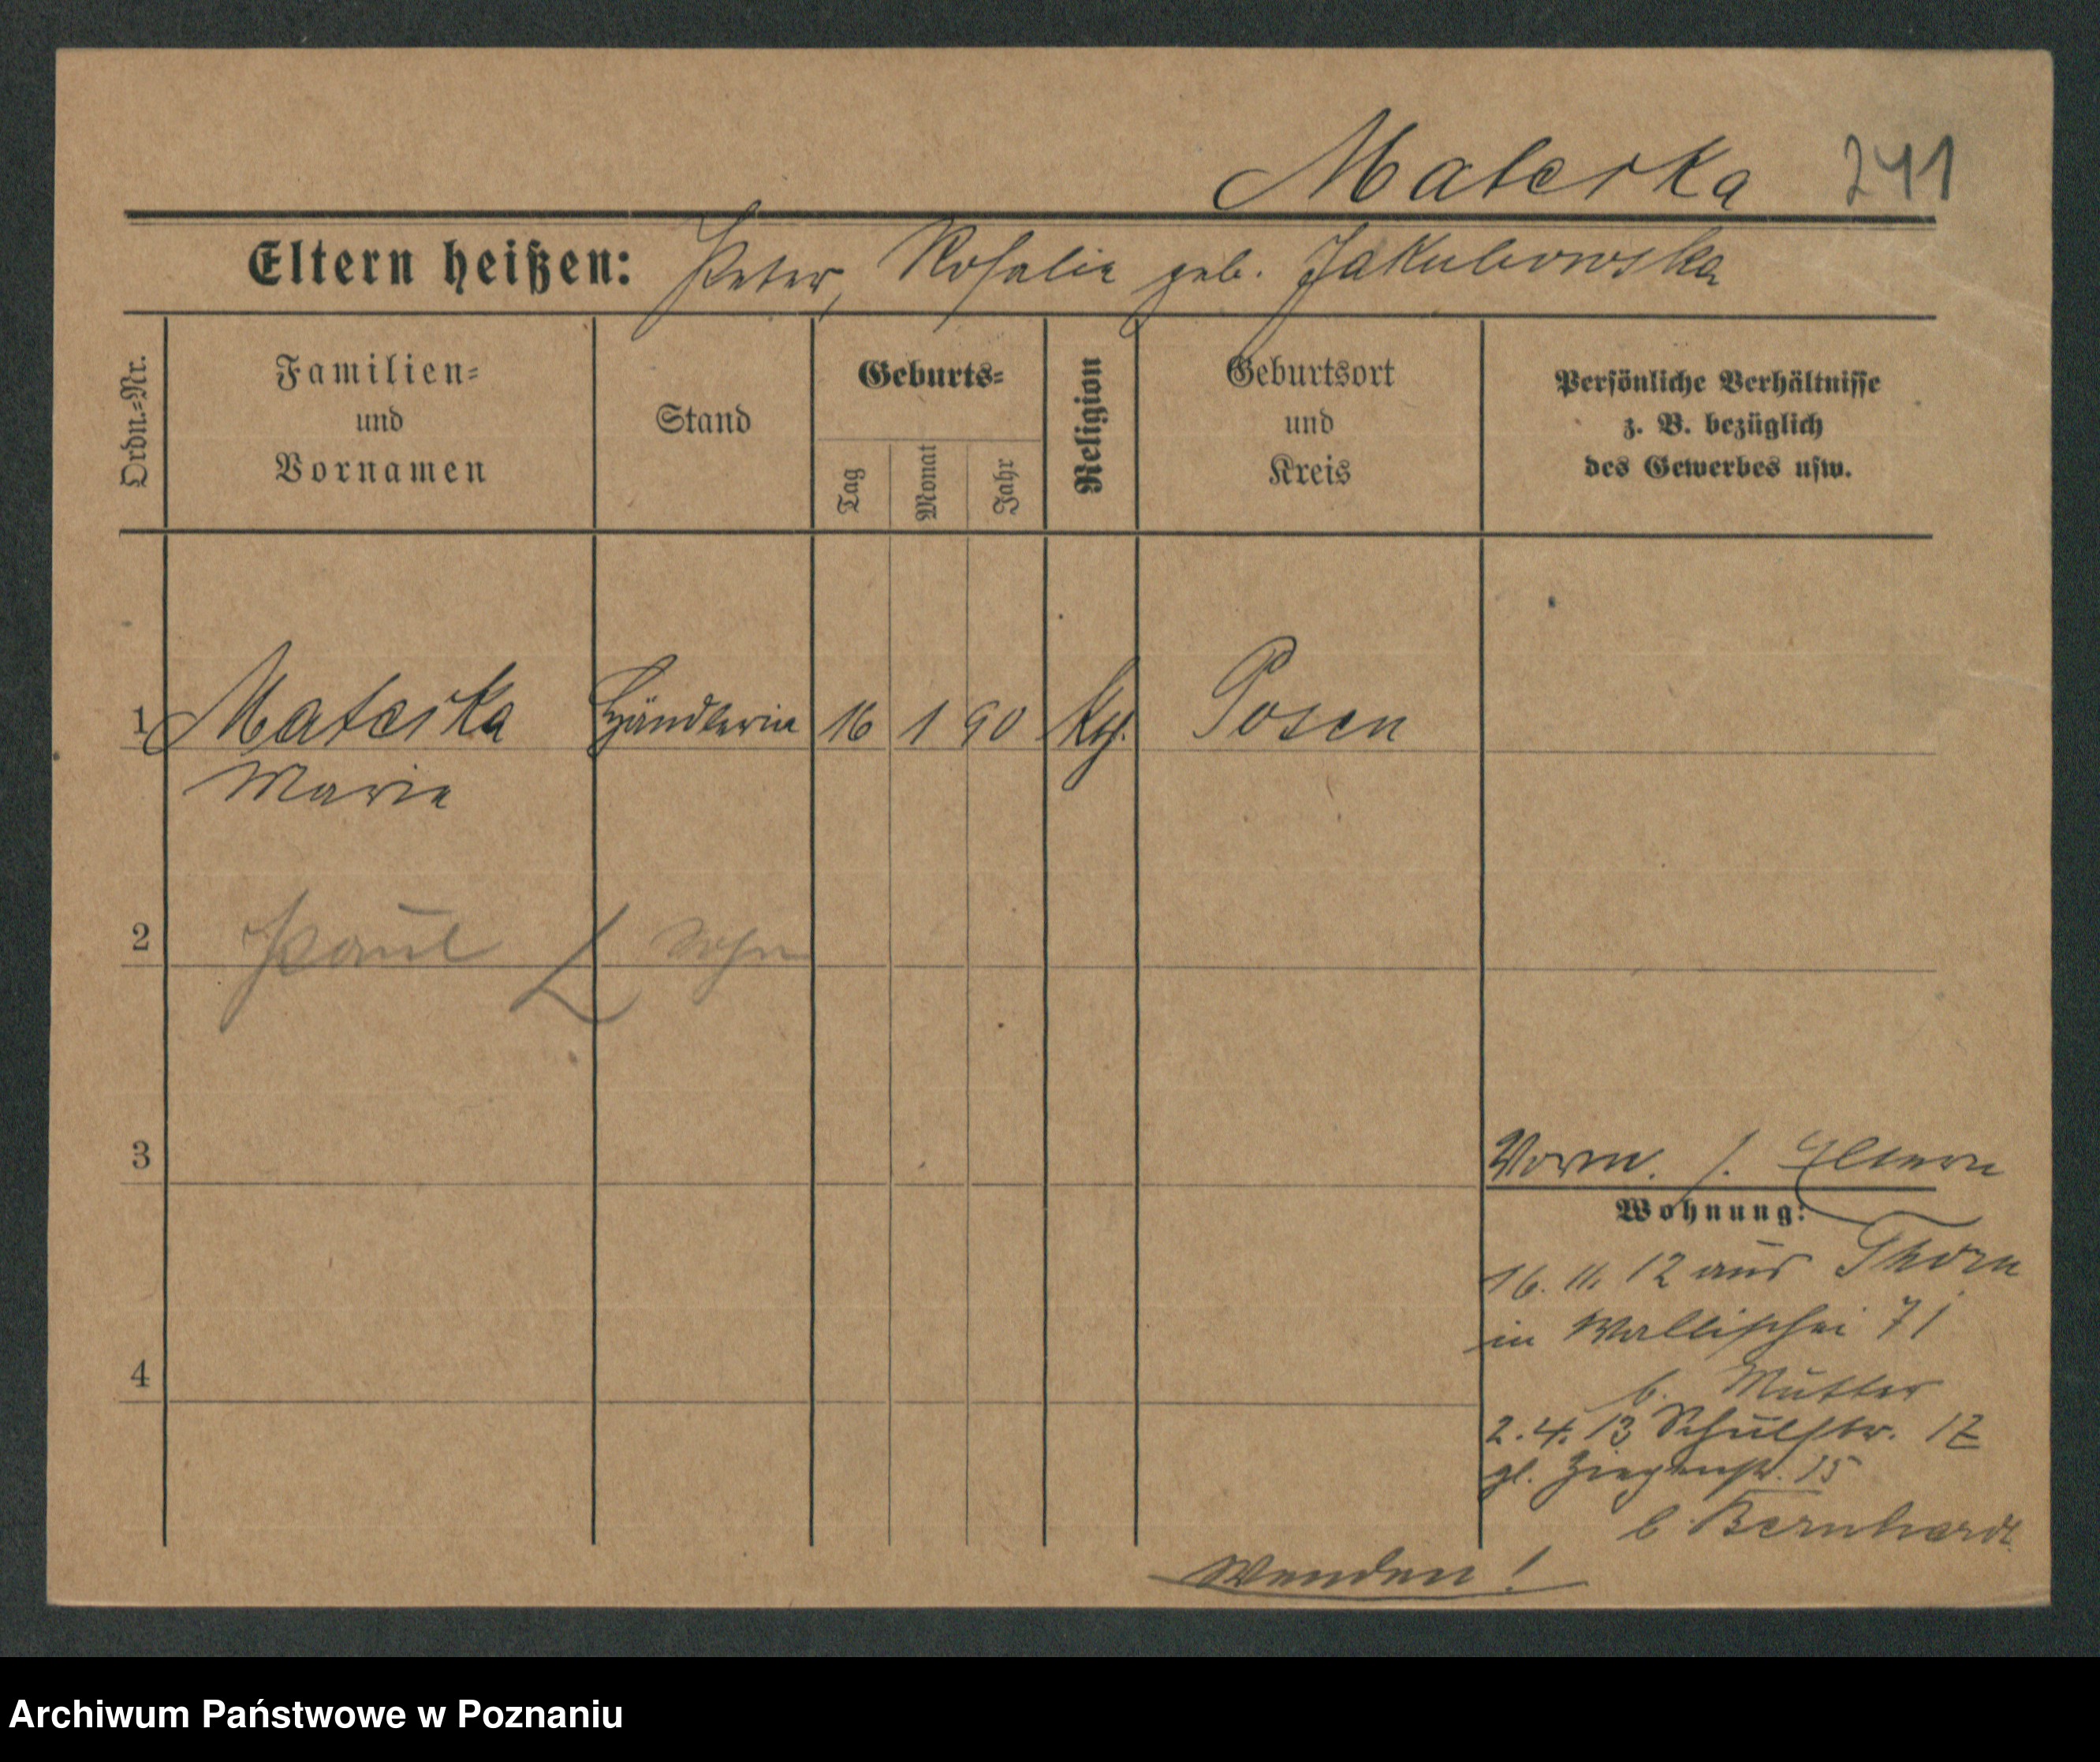 Materka 241
Eltern heißen: Peter, Rosalie geb. Jakubowska
Ordn.-Nr.
Familien-
und
Vornamen
Stand
Geburts-
Tag
Monat
Jahr
Religion
Geburtsort
und
Kreis
Persönliche Verhältnisse
z. B. bezüglich
des Gewerbes usw.
1 Materka Händlerin 16 1 90 Kth. Posen
Marie
2 Paul Sohn
3
Vorm. s. Eltern
Wohnung:
16. 11. 12 aus Thorn
in Wallischei 71
b. Mutter
4
2. 4. 13 Schulstr. 12
gl. Ziegenstr. 15
b. Bernhardt
Wenden!
Archiwum Państwowe w Poznaniu